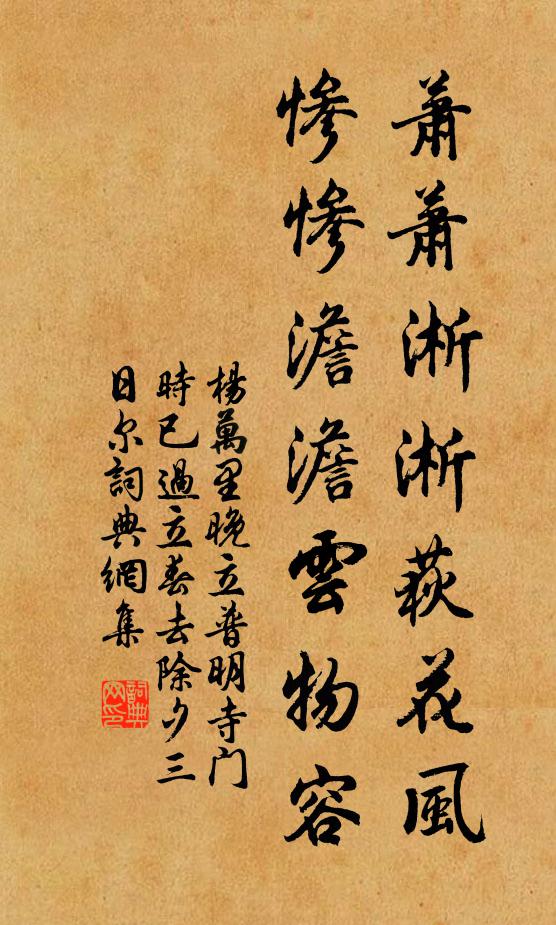 蕭蕭淅淅荻花風
慘慘澹澹雲物容
楊萬里晚立普明寺门
時已過立春去除夕三
日尔詞典網集
詞典网印